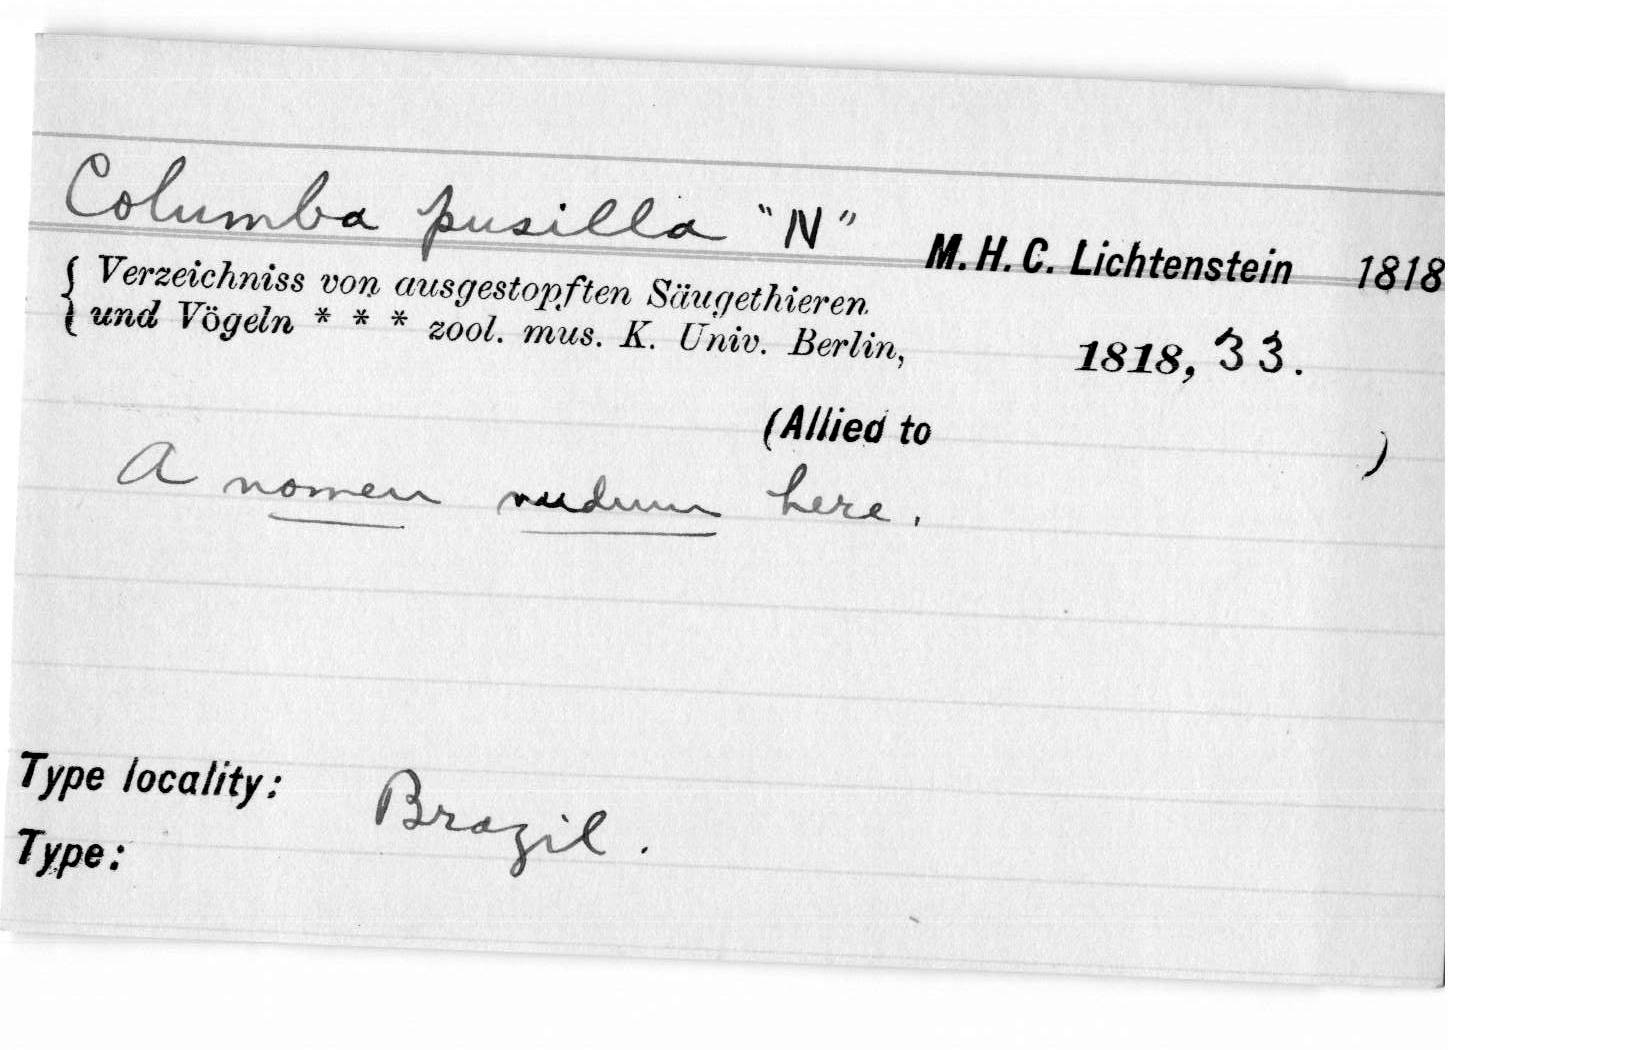 Columba pusilla "N" M. H. C. Lichtenstein 1818
{ Verzeichniss von ausgestopften Säugethieren
{ und Vögeln * * * zool. mus. K. Univ. Berlin, 1818, 33.
(Allied to )
A nomen nudum here.
Type locality: Brazil.
Type: